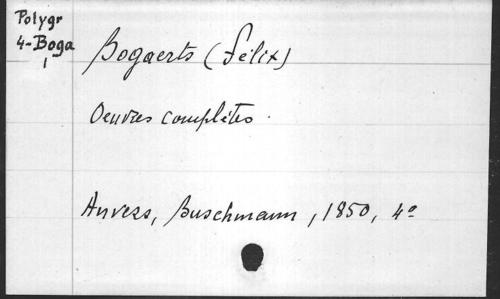 Polygr
4-Boga
1
Bogaerts (Félix)
Oeuvres complètes.
Anvers, Buschmann, 1850, 4º